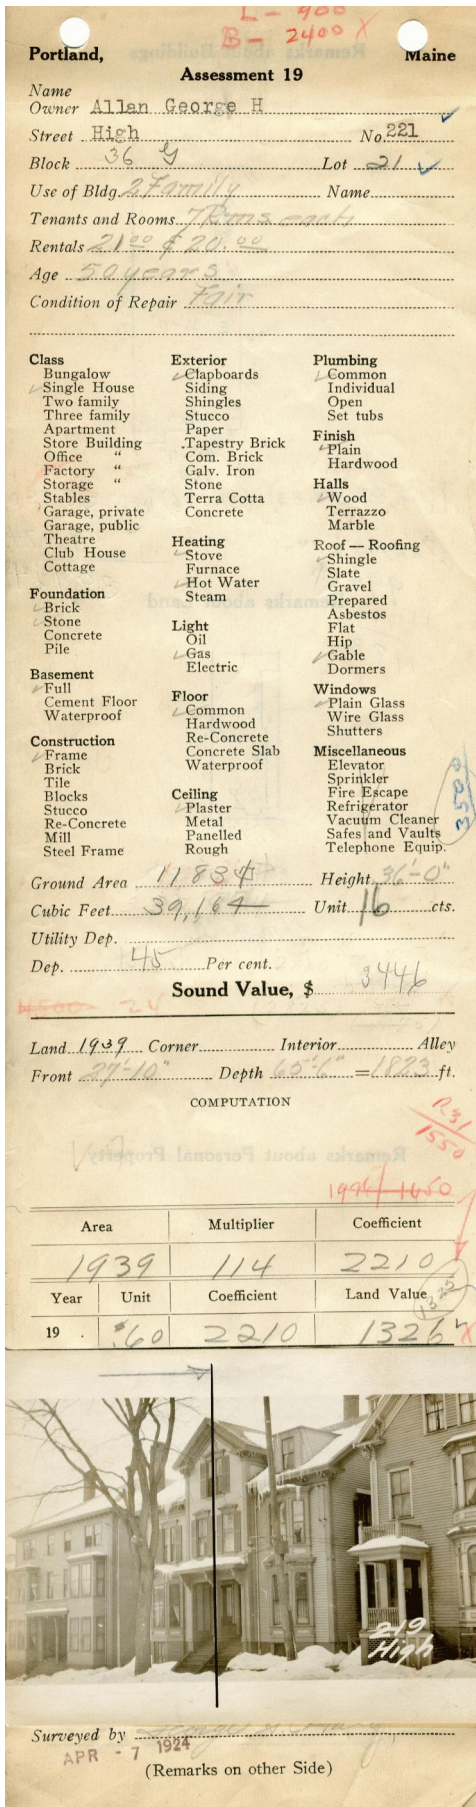 L - 900
B - 2400 X
Portland, Maine
Assessment 19
Name
Owner Allan George H
Street High No. 221
Block 36 G Lot 21
Use of Bldg. 2 Family Name
Tenants and Rooms. 7 Rms each
Rentals 21.00 & 20.00
Age 50 years
Condition of Repair Fair
Class
Bungalow
Single House
Two family
Three family
Apartment
Store Building
Office "
Factory "
Storage "
Stables
Garage, private
Garage, public
Theatre
Club House
Cottage
Foundation
Brick
Stone
Concrete
Pile
Basement
Full
Cement Floor
Waterproof
Construction
Frame
Brick
Tile
Blocks
Stucco
Re-Concrete
Mill
Steel Frame
Exterior
Clapboards
Siding
Shingles
Stucco
Paper
Tapestry Brick
Com. Brick
Galv. Iron
Stone
Terra Cotta
Concrete
Heating
Stove
Furnace
Hot Water
Steam
Light
Oil
Gas
Electric
Floor
Common
Hardwood
Re-Concrete
Concrete Slab
Waterproof
Ceiling
Plaster
Metal
Panelled
Rough
Plumbing
Common
Individual
Open
Set tubs
Finish
Plain
Hardwood
Halls
Wood
Terrazzo
Marble
Roof — Roofing
Shingle
Slate
Gravel
Prepared
Asbestos
Flat
Hip
Gable
Dormers
Windows
Plain Glass
Wire Glass
Shutters
Miscellaneous
Elevator
Sprinkler
Fire Escape
Refrigerator
Vacuum Cleaner
Safes and Vaults
Telephone Equip.
3500
Ground Area 1183 Height 36'-0"
Cubic Feet 39,164 Unit 16 cts.
Utility Dep.
Dep. 45 Per cent.
Sound Value, $ 3446
Land 1939 Corner Interior Alley
Front 27'-10" Depth 65'-6" = 1823 ft.
COMPUTATION
R31
1550
1450
Area Multiplier Coefficient
1939 114 2210
Year Unit Coefficient Land Value
1325
19 . $.60 2210 1326 X
219
High
Surveyed by
APR - 7 1924
(Remarks on other Side)